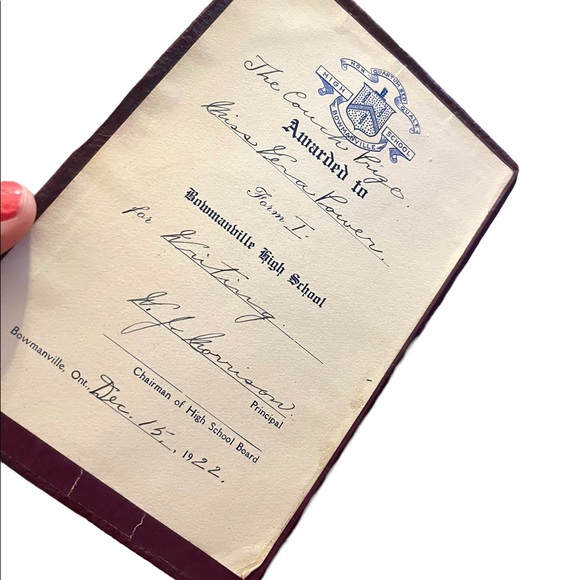 NON QUANTUM SED QUALE
HIGH SCHOOL
BOWMANVILLE
The Couch Prize.
Awarded to
Miss Vera Power.
Form I.
Bowmanville High School
for Writing.
W. J. Morrison.
Principal
Chairman of High School Board
Bowmanville, Ont., Dec. 15, 1922.